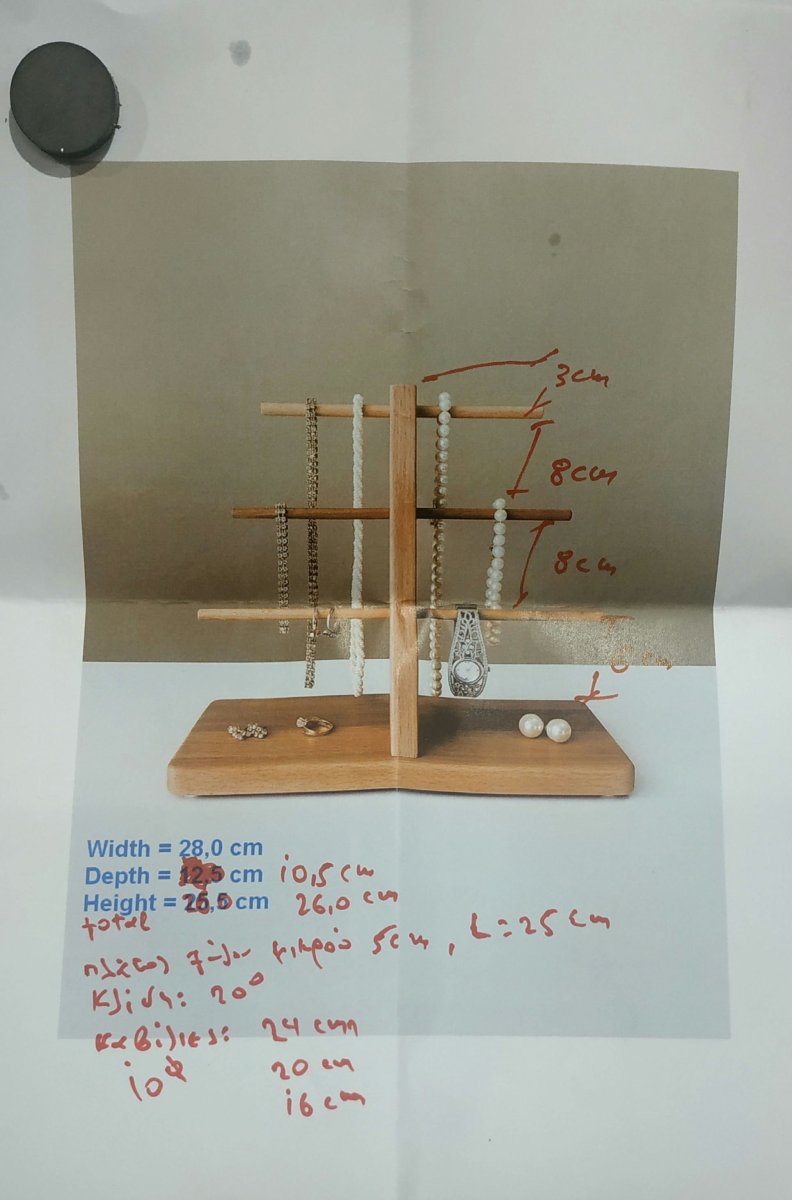 3cm
8cm
8cm
cm
Width = 28,0 cm
Depth = 12,5 cm 10,5 cm
Height = 26,0 cm 26,0 cm
total
πλάτος ξύλου μικρού 5cm, L=25cm
Κλίση: 20°
καβίλιες: 24 cm
10Φ 20 cm
16 cm